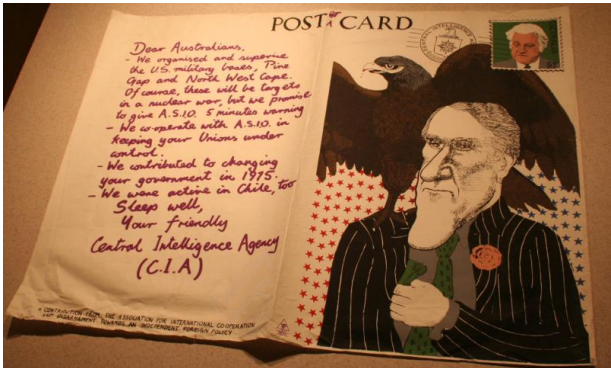 POSTer CARD
Dear Australians,
- We organised and supervise
the U.S. military bases, Pine
Gap and North West Cape.
Of course, these will be targets
in a nuclear war, but we promise
to give A.S.I.O. 5 minutes warning
- We co-operate with A.S.I.O. in
keeping your Unions under
control.
- We contributed to changing
your government in 1975.
- We were active in Chile, too
Sleep well,
Your friendly
Central Intelligence Agency
(C.I.A)
A CONTRIBUTION FROM THE ASSOCIATION FOR INTERNATIONAL CO-OPERATION
AND DISARMAMENT TOWARDS AN INDEPENDENT FOREIGN POLICY
CENTRAL INTELLIGENCE